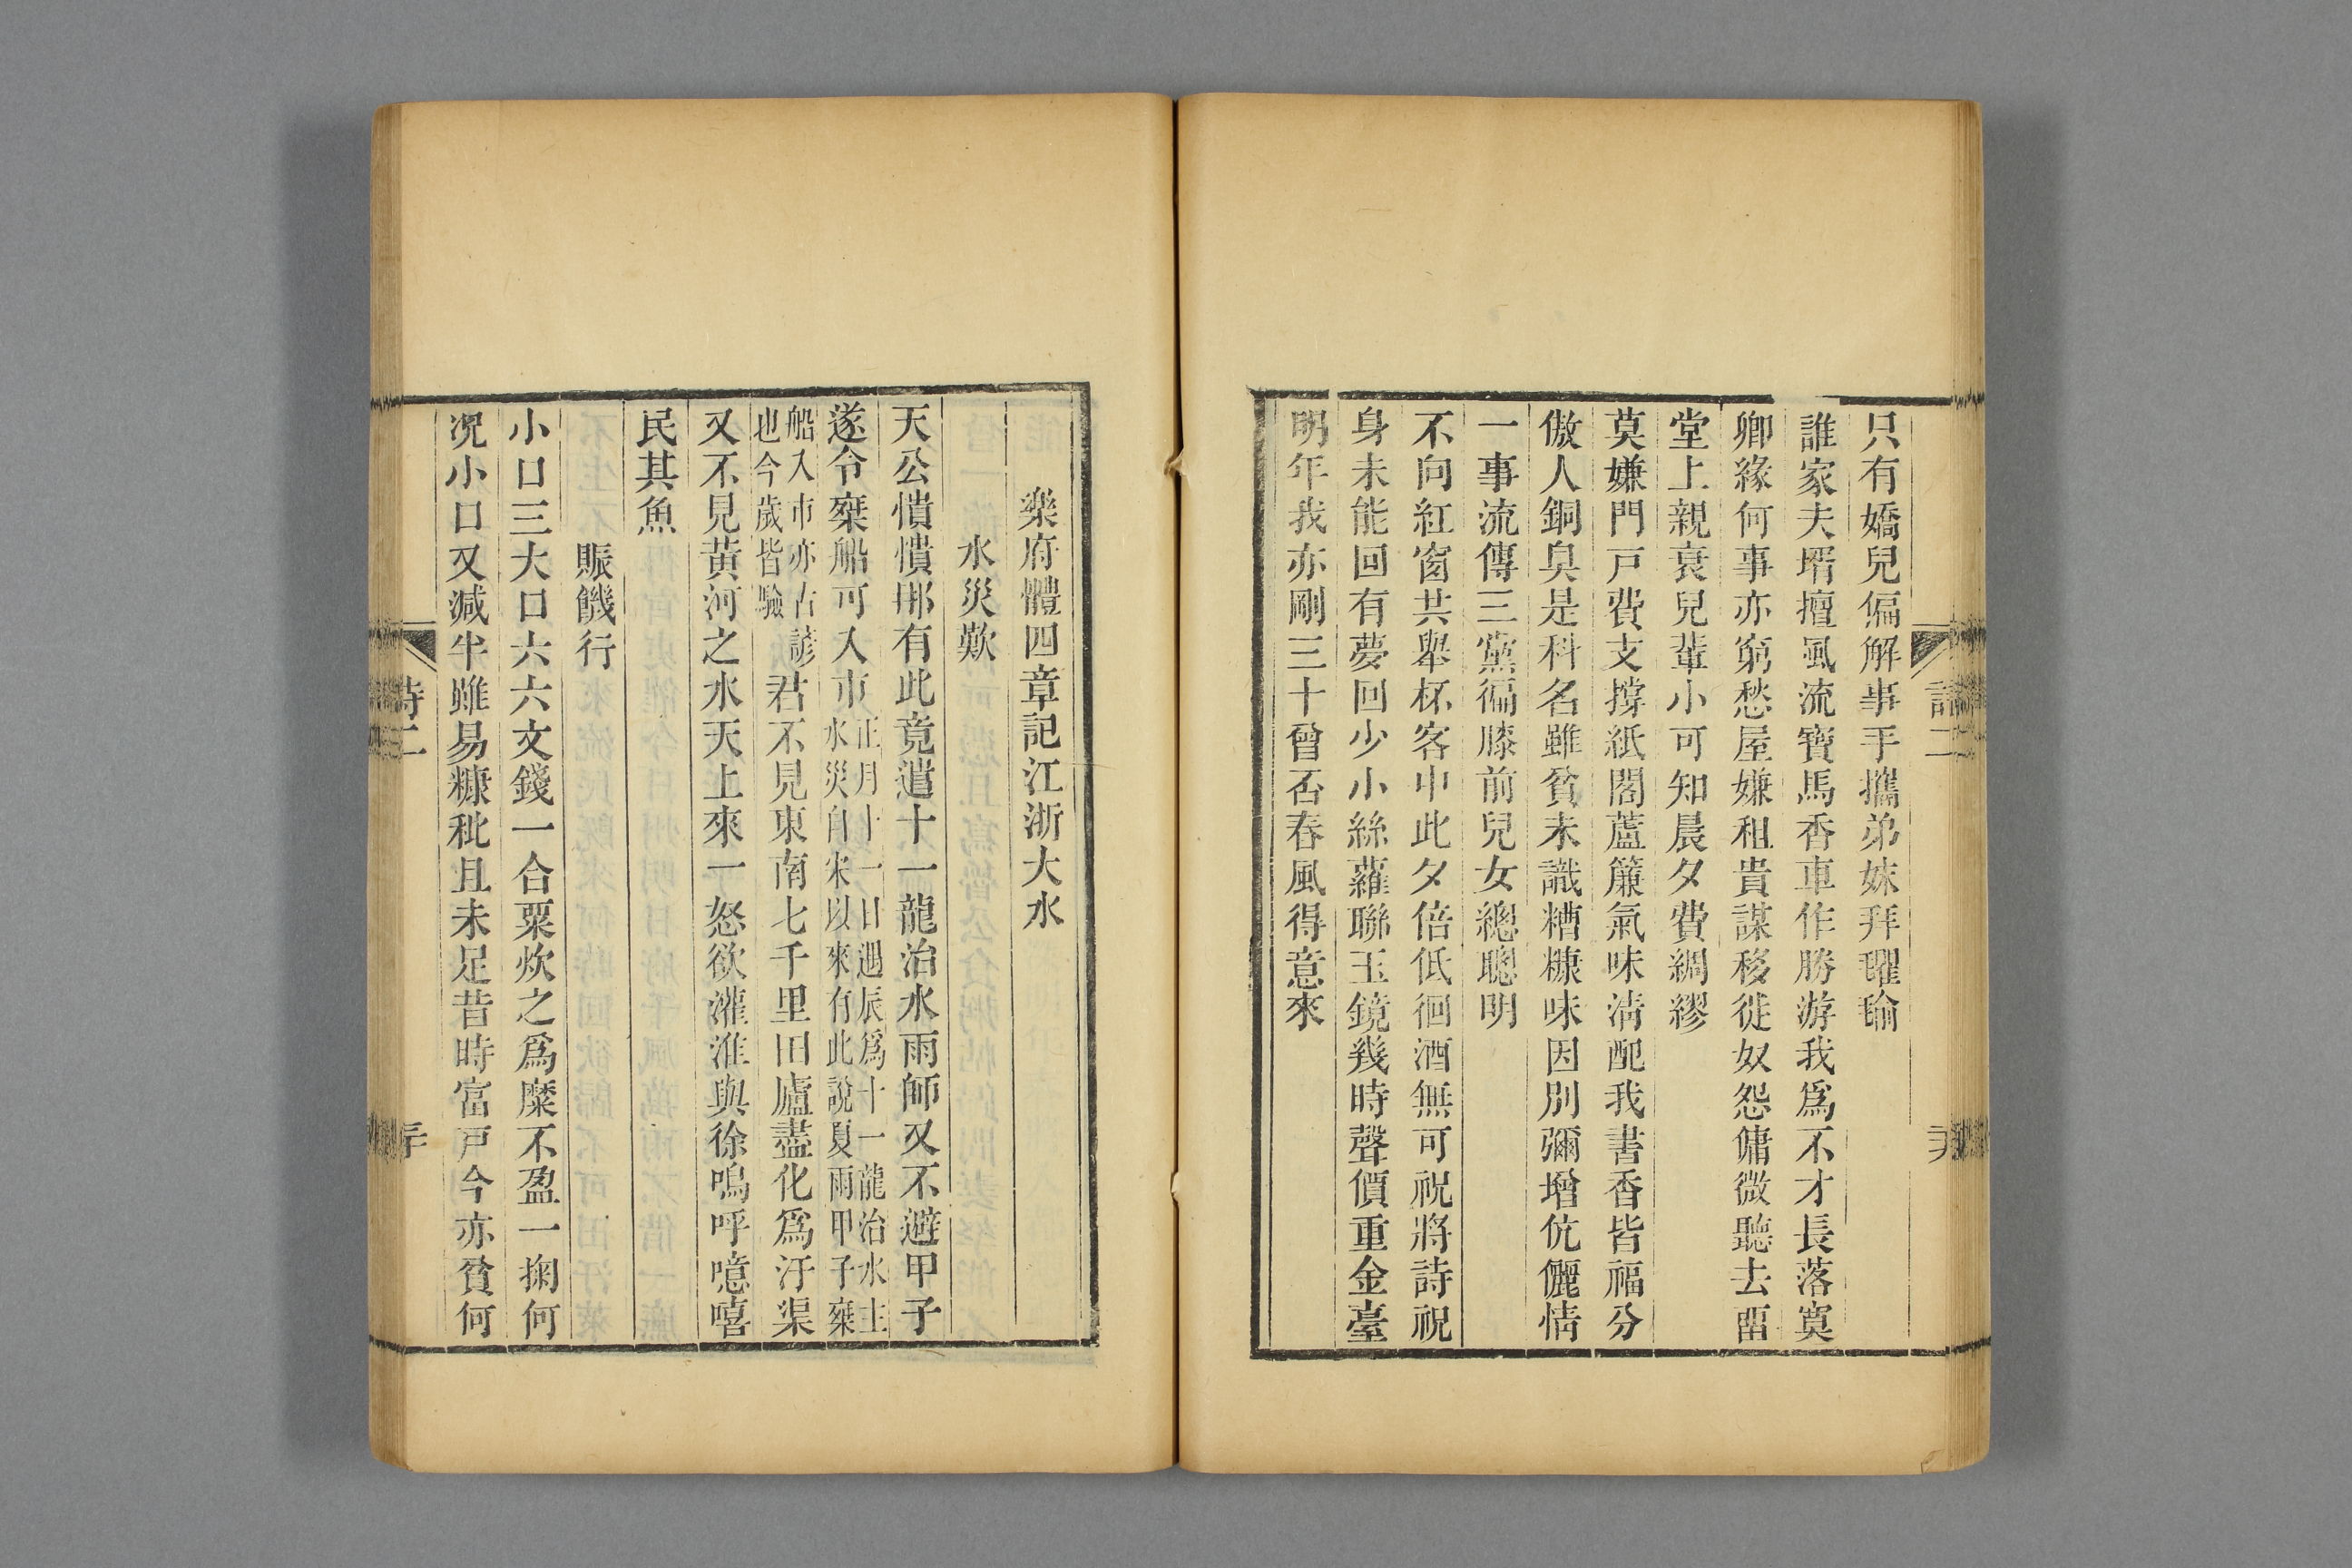 只有嬌兒偏解事手攜弟妹拜氍毹
誰家夫壻擅風流寶馬香車作勝游我爲不才長落寞
卿緣何事亦窮愁屋嫌租貴謀移徙奴怨傭微聽去畱
堂上親衰兒輩小可知晨夕費綢繆
莫嫌門戸費支撐紙閣蘆簾氣味清配我書香皆福分
傲人銅臭是科名雖貧未識糟糠味因別彌增伉儷情
一事流傳三黨徧膝前兒女總聰明
不向紅窗共舉杯客中此夕倍低徊酒無可祝將詩祝
身未能回有夢回少小絲蘿聯玉鏡幾時聲價重金臺
明年我亦剛三十曾否春風得意來
樂府體四章記江浙大水
水災歎
天公憒憒那有此竟遣十一龍治水雨師又不避甲子
遂令椉船可入市正月十一日遇辰爲十一龍治水主
水災自宋以來有此說夏雨甲子椉
船入市亦古諺
也今歲皆驗君不見東南七千里田廬盡化爲汙渠
又不見黃河之水天上來一怒欲灌淮與徐嗚呼噫嘻
民其魚
賑饑行
小口三大口六六文錢一合粟炊之爲糜不盈一掬何
況小口又減半雖易糠秕且未足昔時富戸今亦貧何
詩二